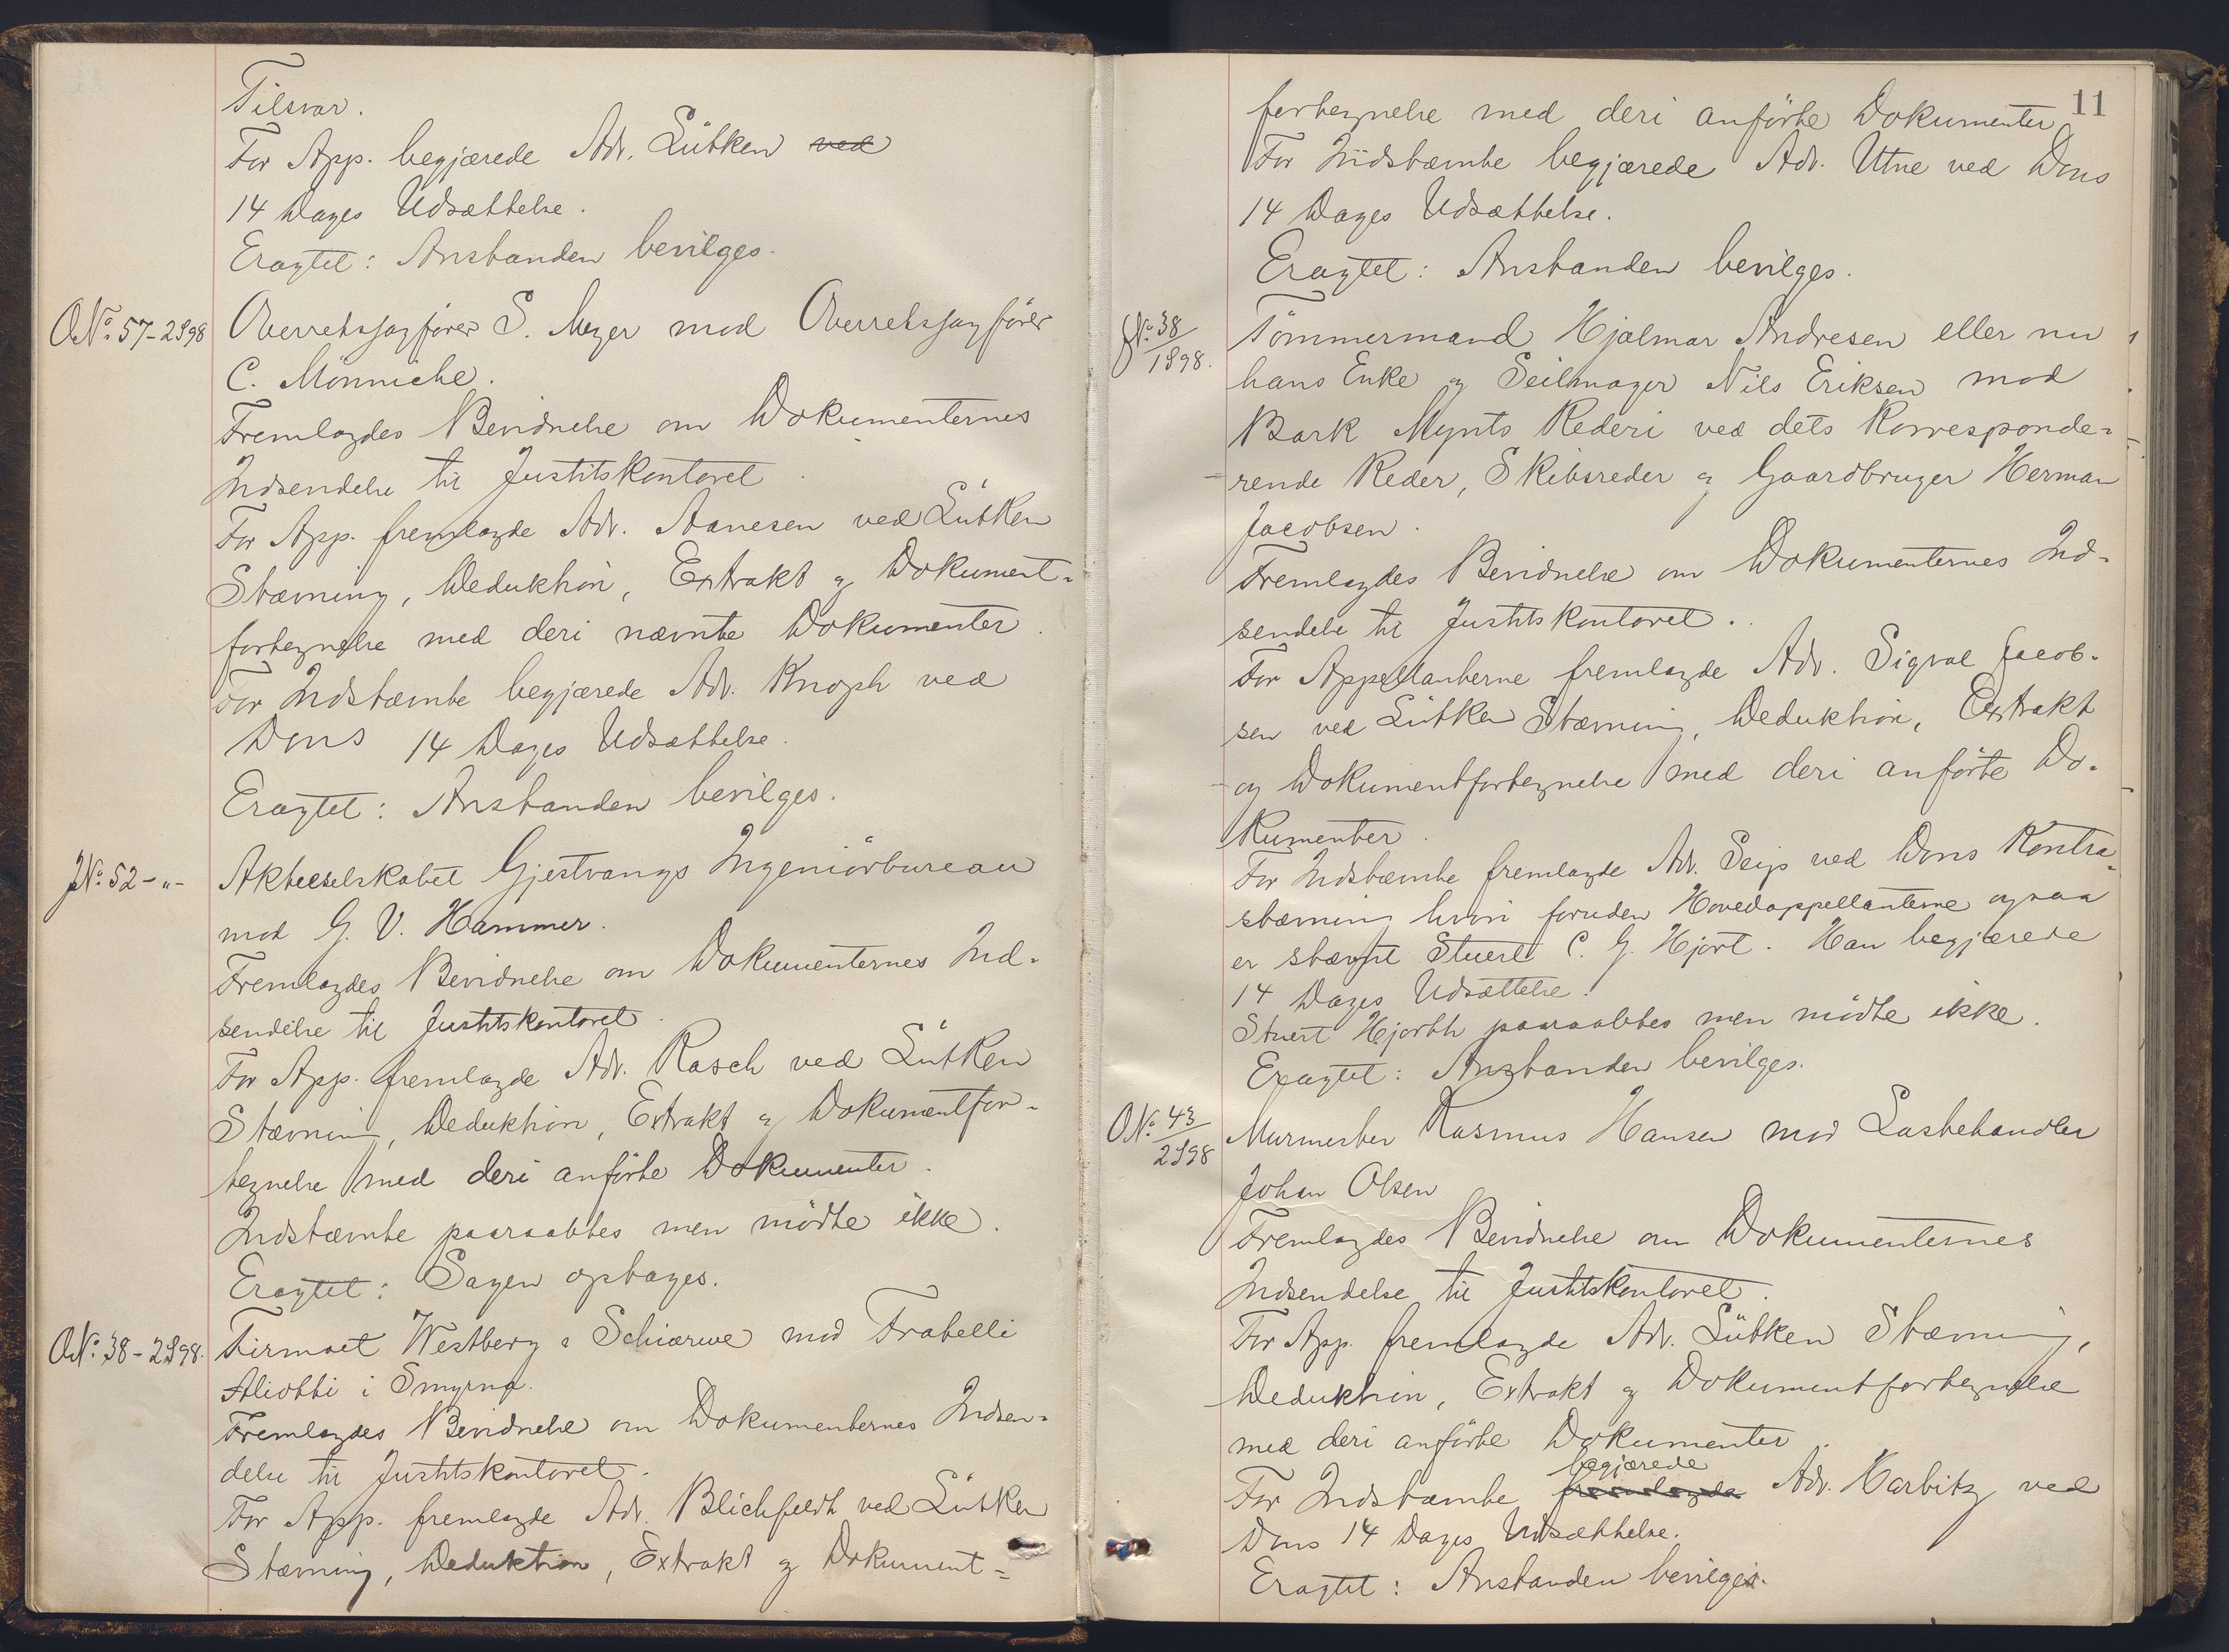 Tilsvar.
For App. begjærede Adv. Lütken ved
14 Dages Udsættelse.
Eragtet: Anstanden bevilges.
ONo. 57-2S98
Overretssagfører S. Meyer mod Overretssagfører
C. Mönniche.
Fremlagdes Bevidnelse om Dokumenternes
Indsendelse til Justitskontoret.
For App. fremlagde Adv. Aanesen ved Lütken
Stævning, Deduktion, Extrakt og Dokument-
fortegnelse med deri nævnte Dokumenter.
For Indstævnte begjærede Adv. Knoph ved
Dons 14 Dages Udsættelse.
Eragtet: Anstanden bevilges.
JNo. 52-"-
Aktieselskabet Gjestvangs Ingeniörbureau
mod G. V. Hammer.
Fremlagdes Bevidnelse om Dokumenternes Ind-
sendelse til Justitskontoret.
For App. fremlagde Adv. Rasch ved Lütken
Stævning, Deduktion, Extrakt og Dokumentfor-
tegnelse med deri anførte Dokumenter.
Indstævnte paaraabtes men mödte ikke.
Eragtet: Sagen optages.
ONo. 38-2S98.
Firmaet Westberg & Schiærwe mod Fratelli
Aliotti i Smyrna.
Fremlagdes Bevidnelse om Dokumenternes Indsen-
delse til Justitskontoret.
For App. fremlagde Adv. Blichfeldt ved Lütken
Stævning, Deduktion, Extrakt og Dokument-
11
fortegnelse med deri anförte Dokumenter
For Indstævnte begjærede Adv. Utne ved Dons
14 Dages Udsættelse.
Eragtet: Anstanden bevilges.
JNo. 38/1S98.
Tömmermand Hjalmar Andresen eller nu
hans Enke og Seilmager Nils Eriksen mod
Bark Mynts Rederi ved dets Korresponde-
rende Reder, Skibsreder og Gaardbruger Herman
Jacobsen.
Fremlagdes Bevidnelse om Dokumenternes Ind-
sendelse til Justitskontoret.
For Appellanterne fremlagde Adv. Sigval Jacob-
sen ved Lütken Stævning, Deduktion, Extrakt
og Dokumentfortegnelse med deri anförte Do-
kumenter.
For Indstævnte fremlagde Adv. Seip ved Dons Kontra-
stævning hvori foruden Hovedappellanterne ogsaa
er stævnt Stuert C. G. Hjort. Han begjærede
14 Dages Udsættelse.
Stuert Hjorth paaraabtes men mödte ikke.
Eragtet: Anstanden bevilges.
ONo. 43/2S98
Murmester Rasmus Hansen mod Lastehandler
Johan Olsen
Fremlagdes Bevidnelse om Dokumenternes
Indsendelse til Justitskontoret.
For App. fremlagde Adv. Lütken Stævning,
Deduktion, Extrakt og Dokumentfortegnelse
med deri anförte Dokumenter.
begjærede
For Indstævnte fremlagde Adv. Harbitz ved
Dons 14 Dages Udsættelse.
Eragtet: Anstanden bevilges.